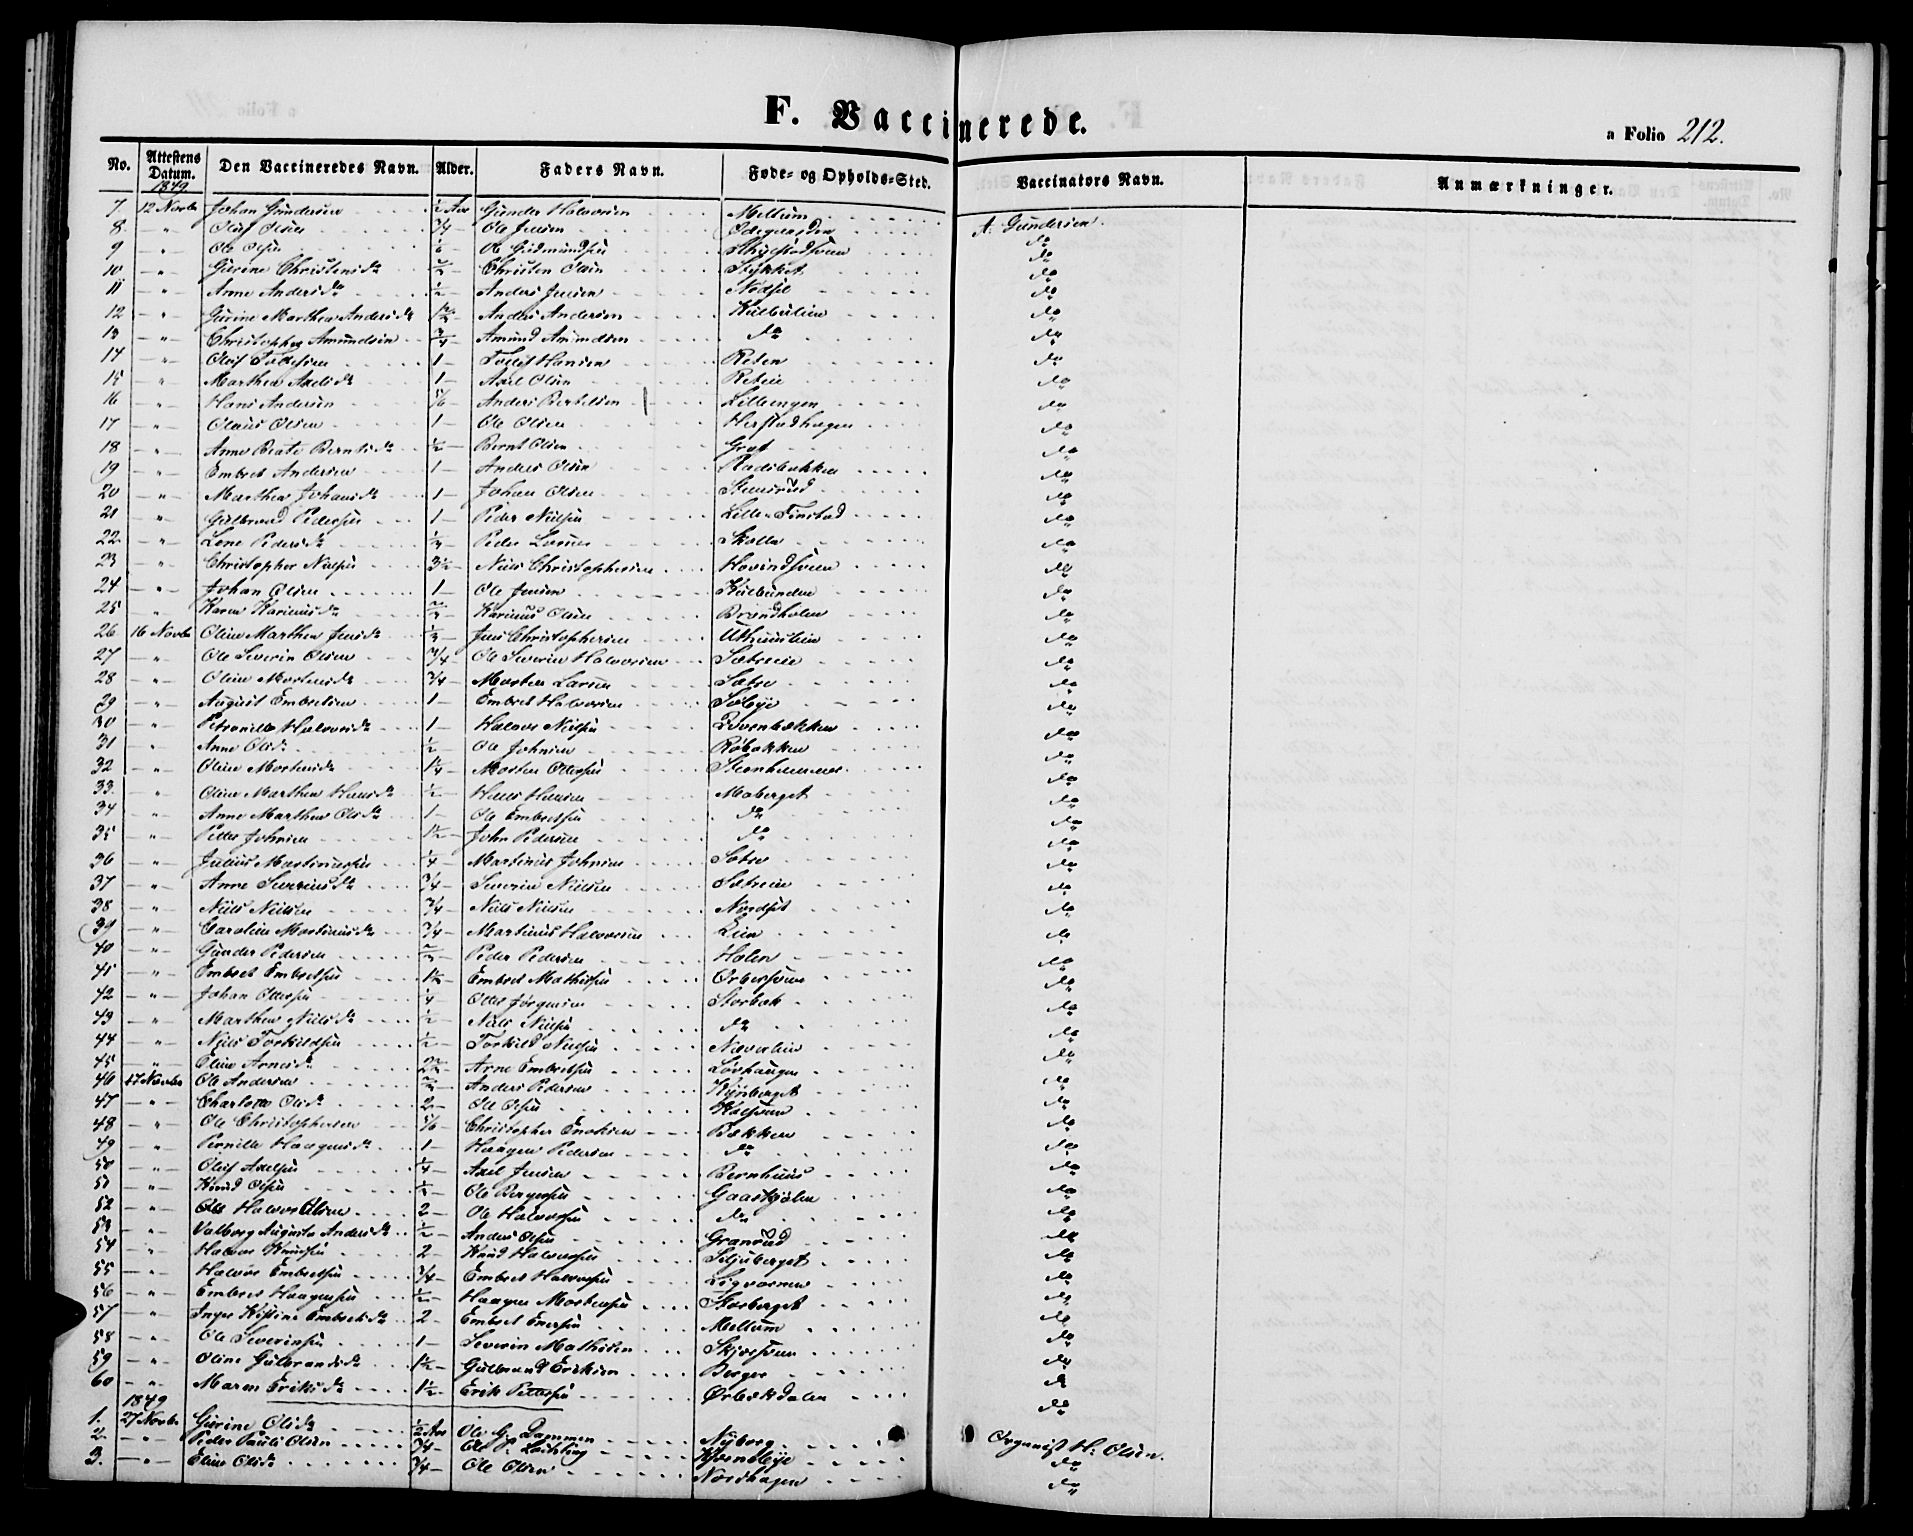 F. Vaccinerede.
a Folio 212.
No. Attestens Datum. Den Vaccineredes Navn. Alder. Faders Navn. Føde- og Opholds-Sted. Vaccinators Navn. Anmærkninger.
1849
7. 12 Novbr Johan Gundersen ½ Aar Gunder Halvorsen Mellum A. Gundersen.
8. " Oluf Olsen ¾ Ole Jensen Ødegaarden do
9 " Ole Olsen Ole Gudmundsen do
10 " Gurine Christensdr Christen Olsen Stykket do
11 " Anne Andersdr ½ Anders Jensen do
12 " Gurine Marthea Andersdr Anders Andersen Kulbulien do
13 " Christopher Amundsen ¾ Amund Amundsen do do
14 " Oluf 1 Hansen Reten do
15 " Marthea Axelsdr 1 Axel Olsen Reteie do
16 " Hans Andersen 5/6 Anders Bertelsen Lilleengen do
17 " Olaus Olsen 1 Ole Olsen Herstadhagen do
18 " Anne Beate Berntsdr ½ Bernt Olsen do
19 " Embret Andersen 1 Anders Olsen Radsbakken do
20 " Marthea Johansdr 1 Johan Olsen Stensrud do
21 " Gulbrand Pedersen 1 Peder Nielsen Lille Finstad do
22 " Lene Pedersdr ⅓ Peder Larsen Skolla do
23 " Christopher Nielsen 3½ Niels Christophersen Hovindsveen do
24 " Johan Olsen 1 Ole Jensen Kulbunden do
25 " Karen Karinusdr ⅔ Karinus Olsen Brændholen do
26 16 Novbr Oline Marthea Jensdr ⅓ Jens Christophersen do
27 " Ole Severin Olsen ¾ Ole Severin Halvorsen Sætreeie do
28 " Oline Mortensdr ¾ Morten Larsen Sætre do
29 " August Embretsen 1 Embret Halvorsen do
30 " Petronille Halvorsdr 1 Halvor Nielsen do
31 " Anne Olsdr ½ Ole Johnsen Røbakken do
32 " Oline Mortensdr 1¼ Morten Ottersen Steenhammer do
33 " Oline Marthea Hansdr ½ Hans Hansen Moberget do
34 " Anne Marthea Olsdr 1 Ole Embretsen do do
35 " Peder Johnsen 1½ John Pedersen do do
36 " Julius Martinussen ¼ Martinus Johnsen Sætre do
37 " Anne Severinsdr ¾ Severin Nielsen Sætreeie do
38 " Niels Nielsen ¾ Niels Nielsen Nordset do
39 " Caroline Martinusdr ¾ Martinus Halvorsen Lien do
40 " Gunder Pedersen ⅔ Peder Pedersen Holen do
41 " Embret Embretsen 1½ Embret Mathisen do
42 " Johan Ottersen ¼ Otter Jørgensen Storbæk do
43 " Marthea Nielsdr ½ Niels Nielsen do do
44 " Niels Torkildsen ½ Torkild Nielsen Næverlien do
45 " Eline Arnesdr Arne Embretsen Løvhaugen do
46 17 Novbr Ole Andersen ⅔ Anders Pedersen Kynberget do
47 " Charlotte Olsdr 2 Ole Olsen do
48 " Ole Christophersen 5/6 Christopher Enoksen Bækken do
49 " Pernille Haagensdr 1 Haagen Pedersen do do
50 " Oluf Axelsen ¼ Axel Jensen Bernhuus do
51 " Knud Olsen ⅓ Ole Børgersen Gaaskjølen do
52 " Ole Halvor Olsen 2 Ole Halvorsen do do
53 " Valborg Augusta Andersdr ½ Anders Olsen Granrud do
54 " Halvor Knudsen 2 Knud Halvorsen Seljuberget do
55 " Halvor Embretsen ¾ Embret Halvorsen do
56 " Embret Haagensen ½ Haagen Mortensen Storberget do
57 " Inger Kistine Embretsdr 2 Embret Enersen Mellum do
58 " Ole Severinsen 1 Severin Mathisen do
59 " Oline Gulbrandsdr 1½ Gulbrand Eriksen Berger do
60 " Maren Eriksdr 1½ Erik Pettersen Ørbækdalen do
1849
1. 27 Novbr Gurine Olsdr ½ Aar Ole G. Dammen Nyborg Organist H: Olsen.
2. " Peder Pauli Olsen ¾ Ole P. do
3. " Eline Olsdr ¾ Ole Olsen Nordhagen do